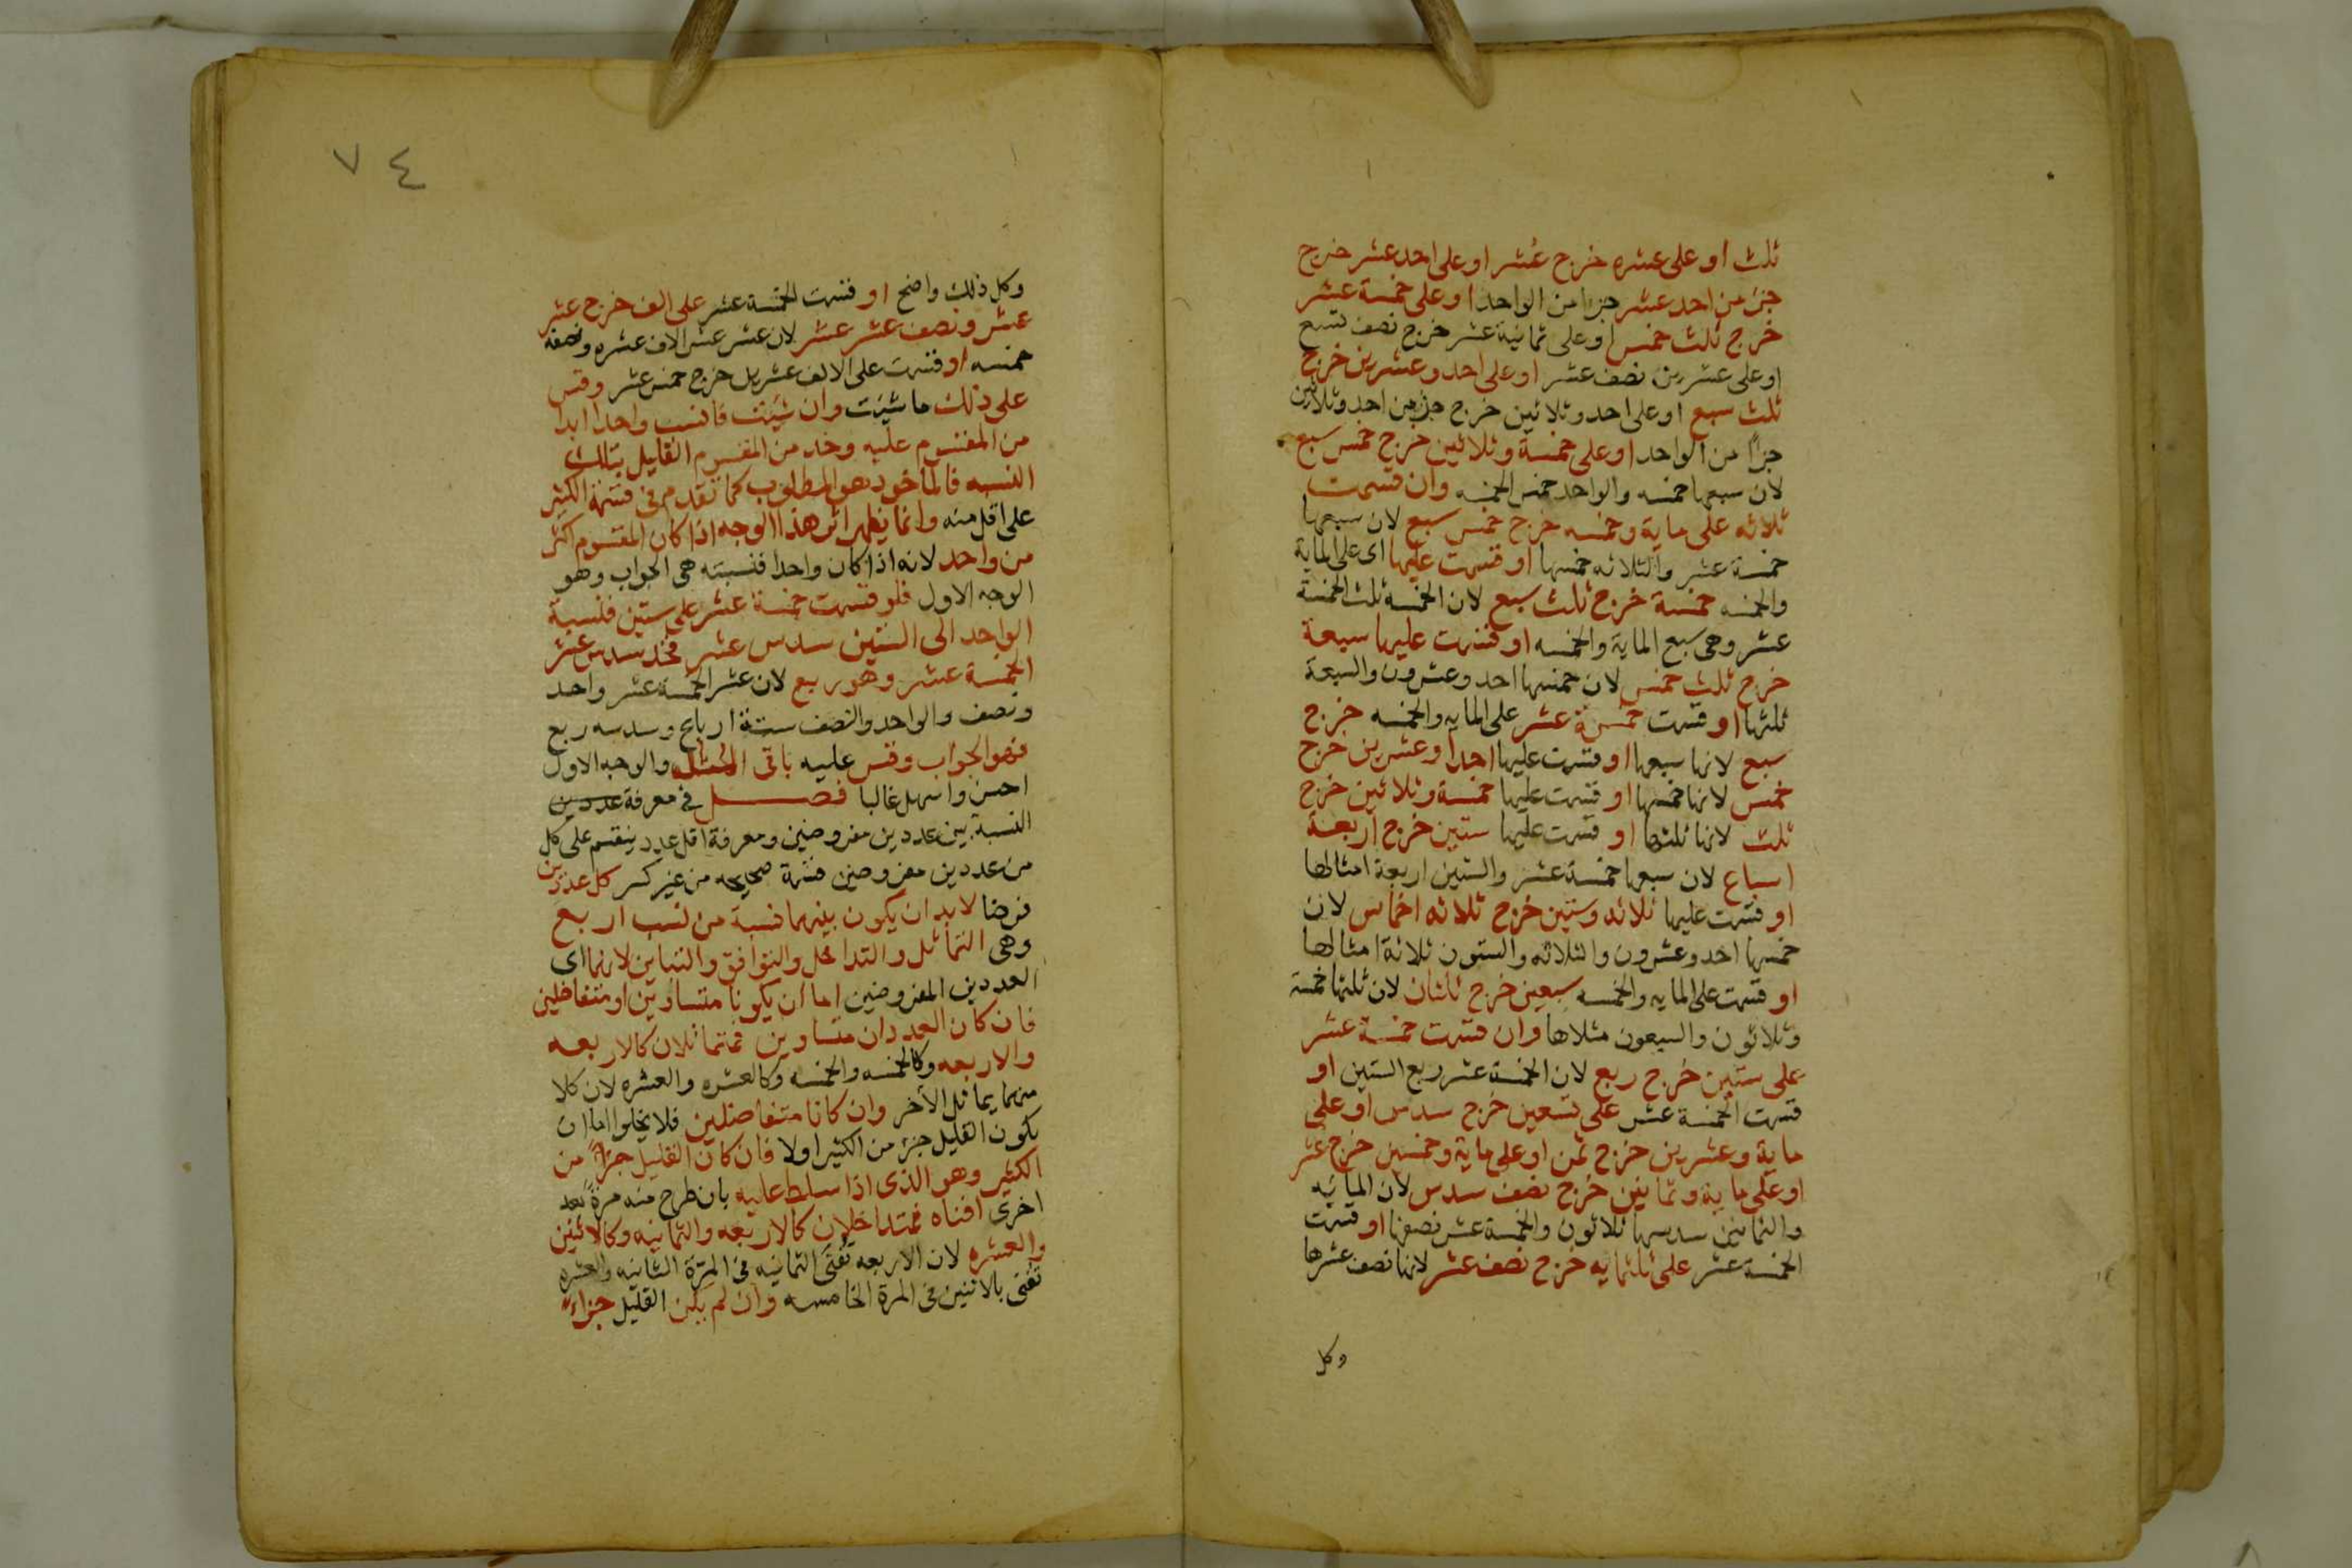 ثلث او على عشره خرج عشر او على احد عشر خرج
جزء من احد عشر جزا من الواحد او على خمسة عشر
خرج ثلث خمس او على ثمانية عشر خرج نصف تسع
او على عشرين نصف عشر او على احد وعشرين خرج
ثلث سبع او على احد وثلاثين خرج جزء من احد وثلاثين
جزاً من الواحد او على خمسة وثلاثين خرج خمس سبع
لان سبعها خمسه والواحد خمس الخمسه وان قسمت
ثلاثه على ماية وخمسه خرج خمس سبع لان سبعها
خمسة عشر والثلاثه خمسها او قسمت عليها اى على الماية
والخمسه خمسة خرج ثلث سبع لان الخمسه ثلث الخمسة
عشر وهى سبع الماية والخمسه او قسمت عليها سبعة
خرج ثلث خمس لان خمسها احد وعشرون والسبعة
ثلثها او قسمت خمسة عشر على المايه والخمسه خرج
سبع لانها سبعها او قسمت عليها احدا وعشرين خرج
خمس لانها خمسها او قسمت عليها خمسة وثلاثين خرج
ثلث لانها ثلثها او قسمت عليها ستين خرج اربعة
اسباع لان سبعها خمسة عشر والستين اربعة امثالها
او قسمت عليها ثلاثه وستين خرج ثلاثه اخماس لان
خمسها احد وعشرون والثلاثه والستون ثلاثة امثالها
او قسمت على المايه والخمسه سبعين خرج ثلثان لان ثلثها خمسة
وثلاثون والسبعون مثلاها وان قسمت خمسة عشر
على ستين خرج ربع لان الخمسة عشر ربع الستين او
قسمت الخمسة عشر على تسعين خرج سدس او على
ماية وعشرين خرج ثمن او على ماية وخمسين خرج عشر
او على ماية وثمانين خرج نصف سدس لان المايه
والثمانين سدسها ثلاثون والخمسة عشر نصفها او قسمت
الخمسة عشر على ثلثمايه خرج نصف عشر لانها نصف عشرها
وكل
٧٤
وكل ذلك واضح او قسمت الخمسة عشر على الف خرج عشر
عشر ونصف عشر عشر لان عشر عشر الالف عشره ونصفه
خمسه او قسمت على الالف عشرين خرج خمس عشر وقس
على ذلك ما شيت وان شيت فانسب واحدا ابدا
من المقسوم عليه وخذ من المقسوم القليل بتلك
النسبه فالماخوذ هو المطلوب كما تقدم فى قسمة الكثير
على اقل منه وانما يظهر اثر هذا الوجه اذا كان المقسوم اكثر
من واحد لانه اذا كان واحدا فنسبته هى الجواب وهو
الوجه الاول فلو قسمت خمسة عشر على ستين فنسبة
الواحد الى الستين سدس عشر فخذ سدس عشر
الخمسة عشر وهو ربع لان عشر الخمسة عشر واحد
ونصف والواحد والنصف ستة ارباع وسدسه ربع
فهو الجواب وقس عليه باقى والوجه الاول
احسن واسهل غالبا فصل فى معرفة عددين
النسبة بين عددين مفروضين ومعرفة اقل عدد ينقسم على كل
من عددين مفروضين قسمة صحيحه من غير كسر كل عددين
فرضا لابد ان يكون بينهما نسبة من نسب اربع
وهى التماثل والتداخل والتوافق والتباين لانهما اى
العددين المفروضين اما ان يكونا متساويين او متفاضلين
فان كان العددان متساوين فمتماثلان كالاربعه
والاربعه وكالخمسه والخمسه وكالعشره والعشره لان كلا
منهما يماثل الآخر وان كانا متفاضلين فلا يخلوا اما ان
يكون القليل جزء من الكثير اولا فان كان القليل جزاً من
الكثير وهو الذى اذا سلط عليه بان طرح منه مرة بعد
اخرى افناه فمتداخلان كالاربعه والثمانيه وكالاثنين
والعشره لان الاربعه تفنى الثمانيه فى المرة الثانيه والعشره
تفنى بالاثنين فى المرة الخامسه وان لم يكن القليل جزاء